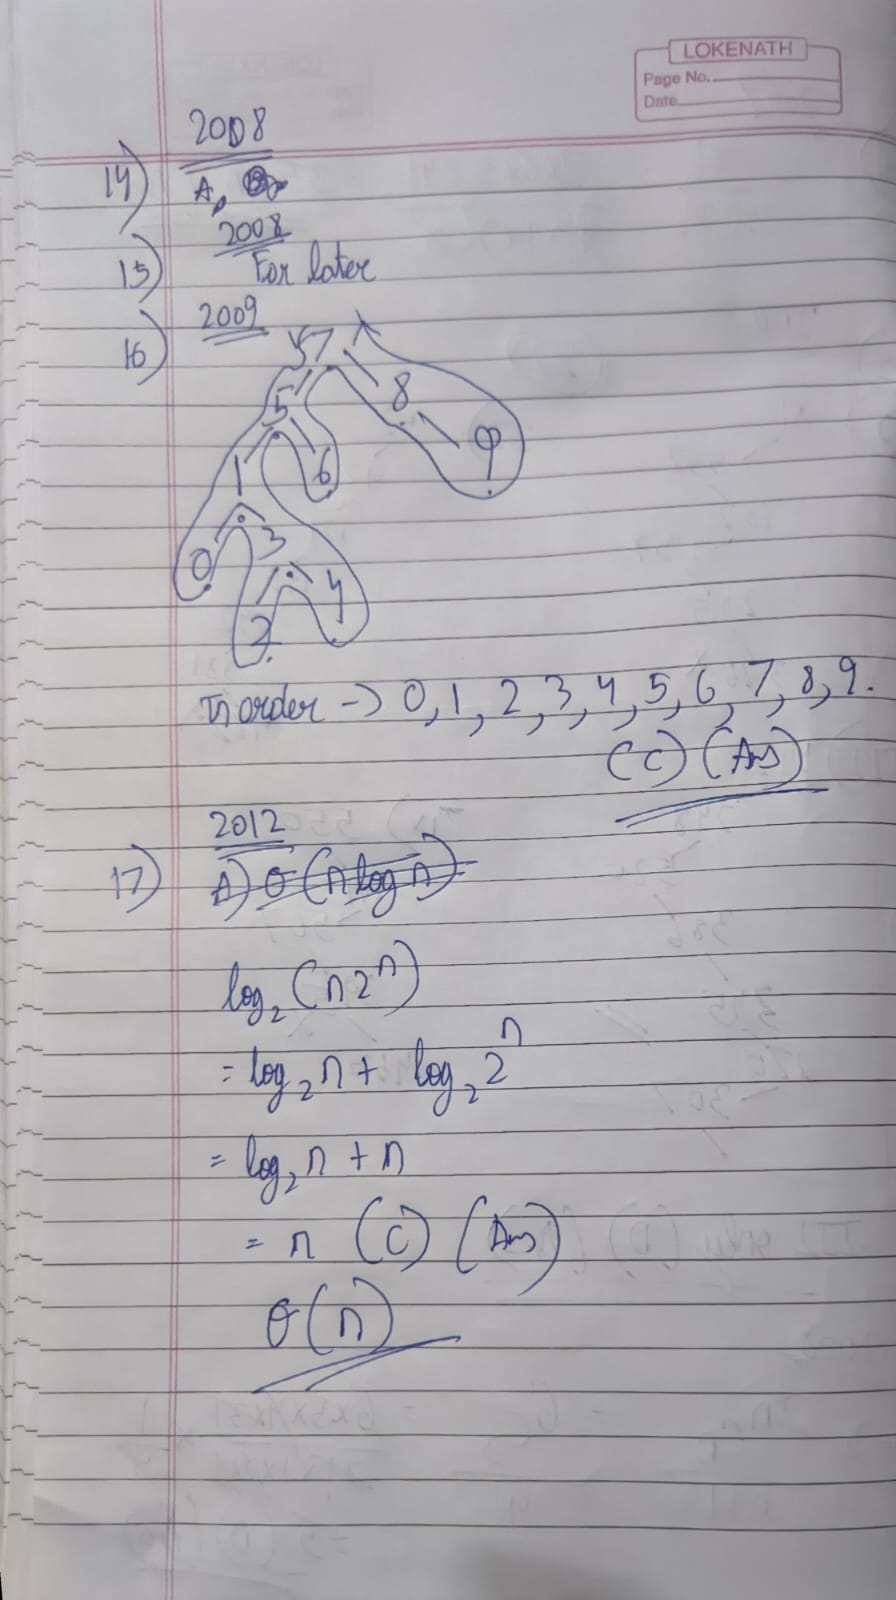 LOKENATH
Page No.
Date
2008
14) A,
2008
15) For later
2009
16)
7
5 8
1 6 9
0 3
2 4
Inorder -> 0, 1, 2, 3, 4, 5, 6, 7, 8, 9.
(C) (Ans)
2012
17) A) θ (n log n)
log₂ (n2ⁿ)
= log₂ n + log₂ 2ⁿ
= log₂ n + n
= n (C) (Ans)
θ(n)